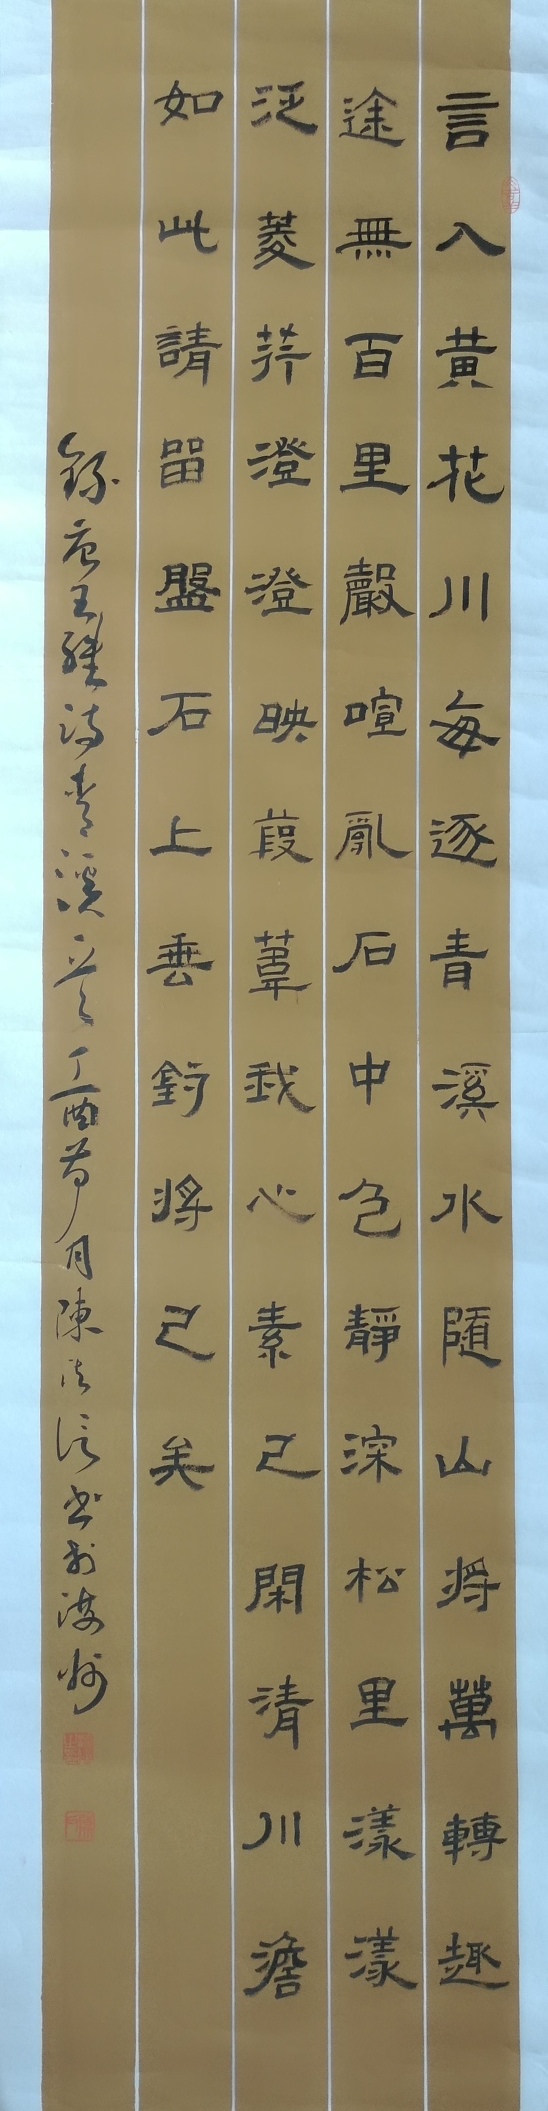 言入黄花川每逐青溪水隨山將萬轉趣
途無百里聲喧亂石中色靜深松里漾漾
泛菱荇澄澄映葭葦我心素已閑清川澹
如此請留盤石上垂釣將已矣
錄唐王維詩青溪丁酉月陳法信書於海州